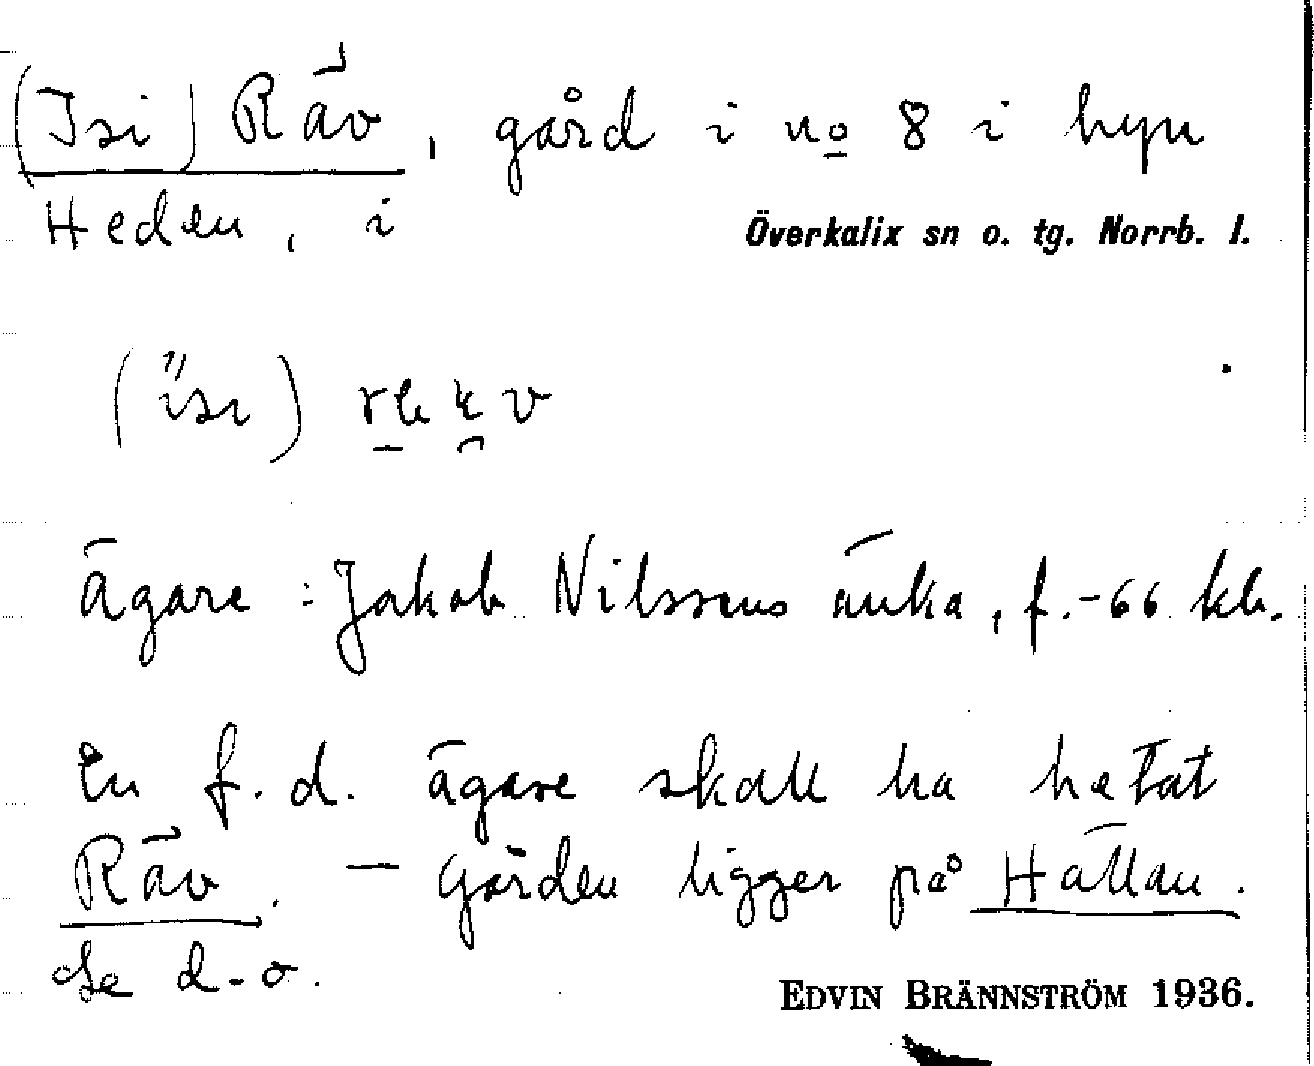 (Isi) Räv, gård i no 8 i byn
Heden, i
Överkalix sn o. tg. Norrb. l.
ägare: Jakob Nilssons änka, f. -66 kb.
En f.d. ägare skall ha hetat
Räv. — Gården ligger på Hällan.
Se d.o.
EDVIN BRÄNNSTRÖM 1936.